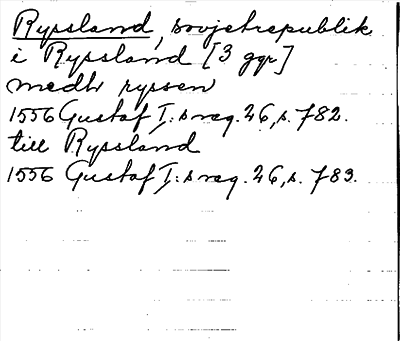 Ryssland, sovjetrepublik
i Ryssland [3 ggr]
medh ryssen
1556 Gustaf I:s reg. 26, s. 782.
till Ryssland
1556 Gustaf I:s reg. 26, s. 783.